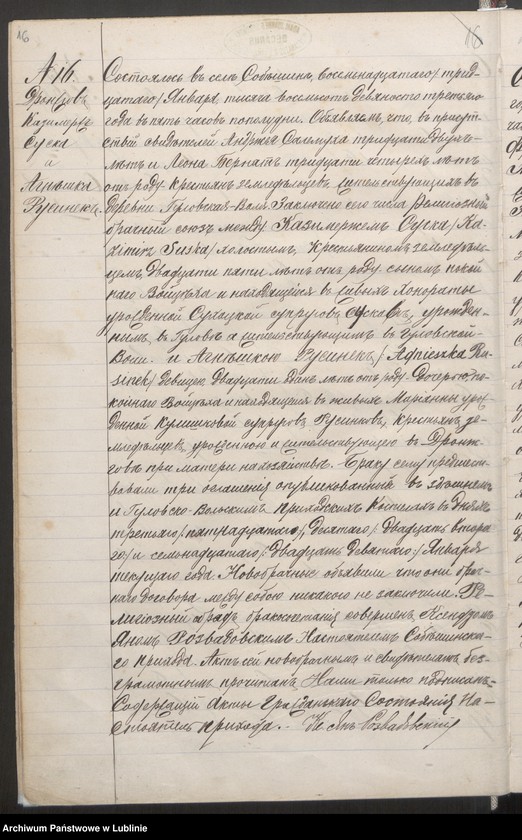 16
16
N 16.
Дронжгов
Казимержъ
Суска
и
Агнешка
Русинекъ
Состоялось въ селѣ Собѣшинѣ, восемнадцатаго/трид-
цатаго/Января тысяча восемьсотъ девяносто третьяго
года въ пять часовъ пополудни. Объявляемъ, что въ присут-
ствіи свидѣтелей Андржея тридцати
лѣтъ и Леона Бернатъ тридцати четырехъ лѣтъ
отъ роду, крестьянъ земледѣльцевъ жительствующихъ въ
деревни Гуловская-Воля. Заключено сего числа Религіозный
брачный союзъ между Казимержемъ Суска /Ka-
zimirz Suska/ холостымъ, крестьяниномъ земледѣль-
цемъ, двадцати пяти лѣтъ отъ роду, сыномъ покой-
наго Войцѣха и находящейся въ живыхъ Хонораты
урожденной супруговъ Сускавъ, урожден-
нымъ въ Гуловѣ а жительствующимъ въ Гуловской-
Воли. и Агнѣшкою Русинекъ /Agnieszka Ru-
sinek/ девицею, двадцати лѣтъ отъ роду. Дочерью по-
койнаго Войцѣха и находящейся въ живыхъ Маріанны урож-
денной Кулишковой супруговъ Русинковъ, крестьянъ зе-
мледѣльцевъ, урожденною и жительствующею въ Дронж-
говѣ при матери на хозяйствѣ. Браку сему предшест-
вовали три оглашенія опубликованныя въ здѣшнемъ
и Гуловско-Вольскимъ приходскихъ Костелахъ въ дняхъ
третьяго /пятнадцатаго/, десятаго /двадцать втора-
го/ и семнадцатаго /двадцать девятаго/ Января
текущаго года. Новобрачные объявили что они брач-
наго договора между собою никакого не заключили. Ре-
лигіозный обрядъ бракосочетанія совершенъ Ксендзомъ
Яномъ Розвадовскимъ Настоятелемъ Собѣшинска-
го прихода. Актъ сей новобрачнымъ и свидѣтелямъ без-
грамотнымъ прочитанъ, Нами только подписанъ.
Содержащій Акты Гражданскаго Состоянія На-
стоятель прихода. Кс Янъ Розвадовскій
Archiwum Państwowe w Lublinie